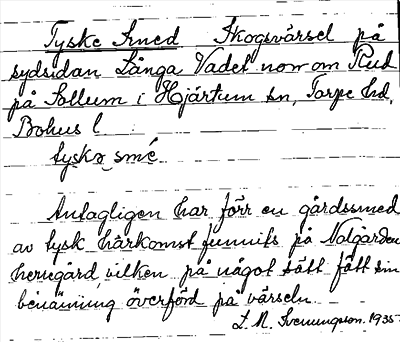 Tyske Smed Skogsvärsel på
sydsidan Långa Vadet norr om Rud
på Sollum i Hjärtum sn, Torpe hd,
Bohus l
tyskə smé
Antagligen har förr en gårdssmed
av tysk härkomst funnits på Nolgården
herregård, vilken på något sätt fått sin
benämning överförd på värseln.
L. M. Svenungson. 1935.